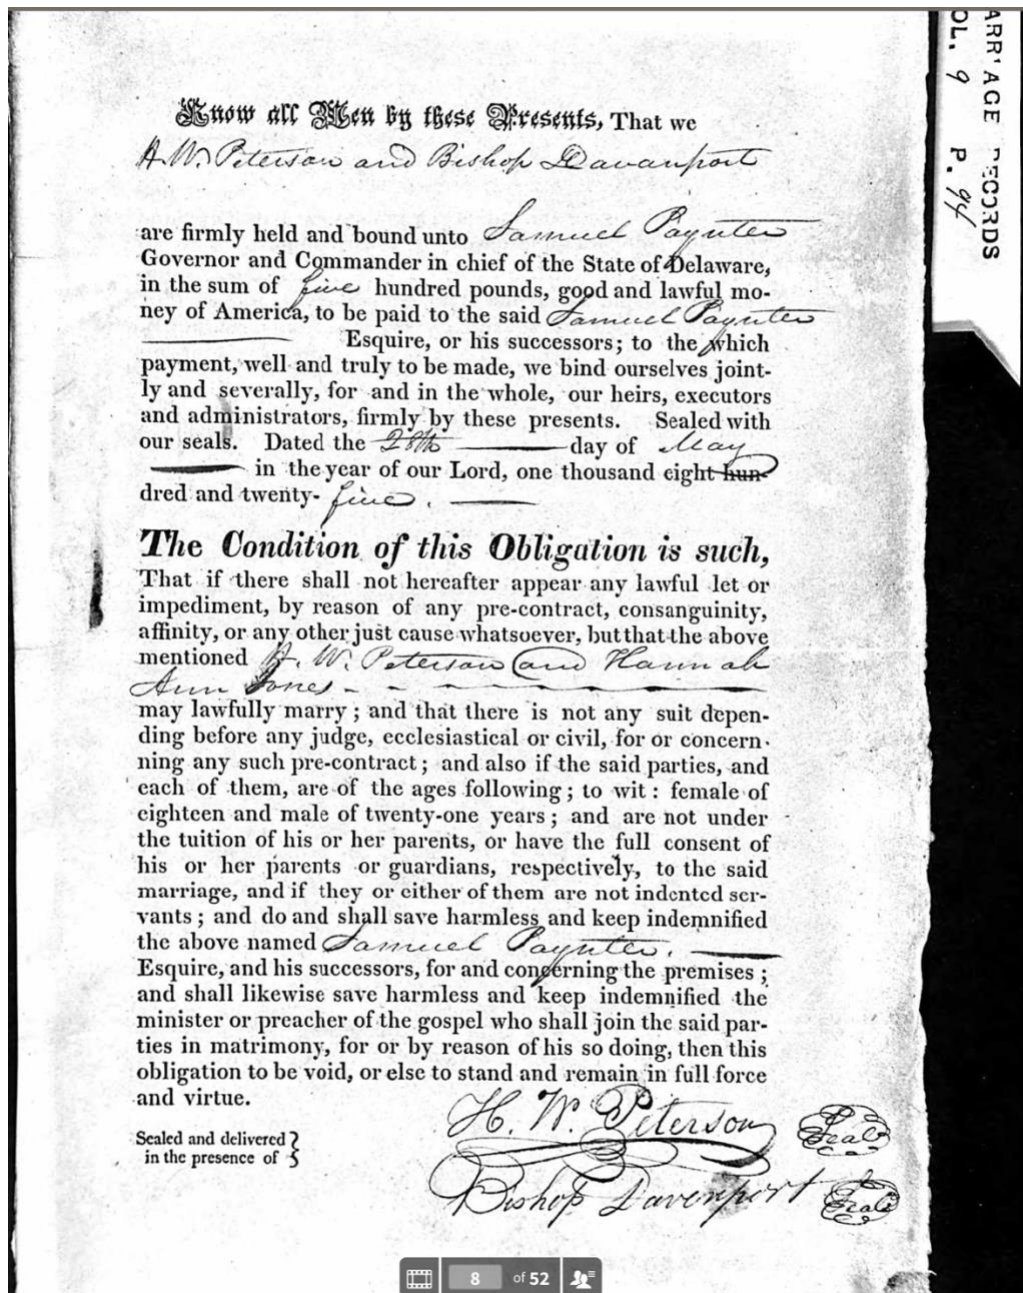 Know all Men by these Presents, That we
H. W. Peterson and Bishop Davanport
are firmly held and bound unto Samuel Paynter
Governor and Commander in chief of the State of Delaware,
in the sum of five hundred pounds, good and lawful mo-
ney of America, to be paid to the said Samuel Paynter
Esquire, or his successors; to the which
payment, well and truly to be made, we bind ourselves joint-
ly and severally, for and in the whole, our heirs, executors
and administrators, firmly by these presents. Sealed with
our seals. Dated the 28th day of May
in the year of our Lord, one thousand eight hun-
dred and twenty- five.
The Condition of this Obligation is such,
That if there shall not hereafter appear any lawful let or
impediment, by reason of any pre-contract, consanguinity,
affinity, or any other just cause whatsoever, but that the above
mentioned H. W. Peterson and Hannah
Ann Jones
may lawfully marry; and that there is not any suit depen-
ding before any judge, ecclesiastical or civil, for or concern-
ning any such pre-contract; and also if the said parties, and
each of them, are of the ages following; to wit: female of
eighteen and male of twenty-one years; and are not under
the tuition of his or her parents, or have the full consent of
his or her parents or guardians, respectively, to the said
marriage, and if they or either of them are not indented ser-
vants; and do and shall save harmless and keep indemnified
the above named Samuel Paynter.
Esquire, and his successors, for and concerning the premises;
and shall likewise save harmless and keep indemnified the
minister or preacher of the gospel who shall join the said par-
ties in matrimony, for or by reason of his so doing, then this
obligation to be void, or else to stand and remain in full force
and virtue.
Sealed and delivered
in the presence of
H. W. Peterson Seal
Bishop Davenport Seal
ARR'AGE RECORDS
OL. 9 P. 94
8 of 52